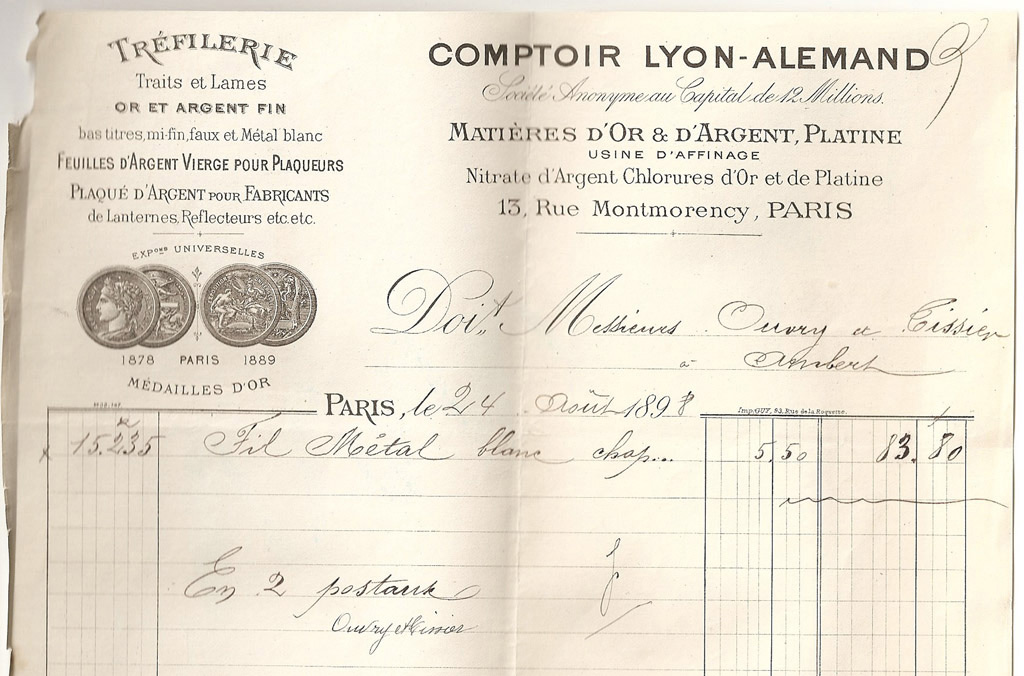 TRÉFILERIE
Traits et Lames
OR ET ARGENT FIN
bas titres, mi-fin, faux et Métal blanc
FEUILLES D'ARGENT VIERGE POUR PLAQUEURS
PLAQUÉ D'ARGENT POUR FABRICANTS
de Lanternes, Reflecteurs etc. etc.
EXPONS UNIVERSELLES
1878 PARIS 1889
MÉDAILLES D'OR
COMPTOIR LYON-ALEMAND
Société Anonyme au Capital de 12 Millions.
MATIÈRES D'OR & D'ARGENT, PLATINE
USINE D'AFFINAGE
Nitrate d'Argent Chlorures d'Or et de Platine
13, Rue Montmorency, PARIS
Doit Messieurs Ouvry et Tissier
à Ambert
PARIS, le 24 Août 1898
Imp. GUY, 93, Rue de la Roquette.
15.235 Fil Métal blanc chap... 5,50 83.80
En 2 postaux
Ouvry et Tissier